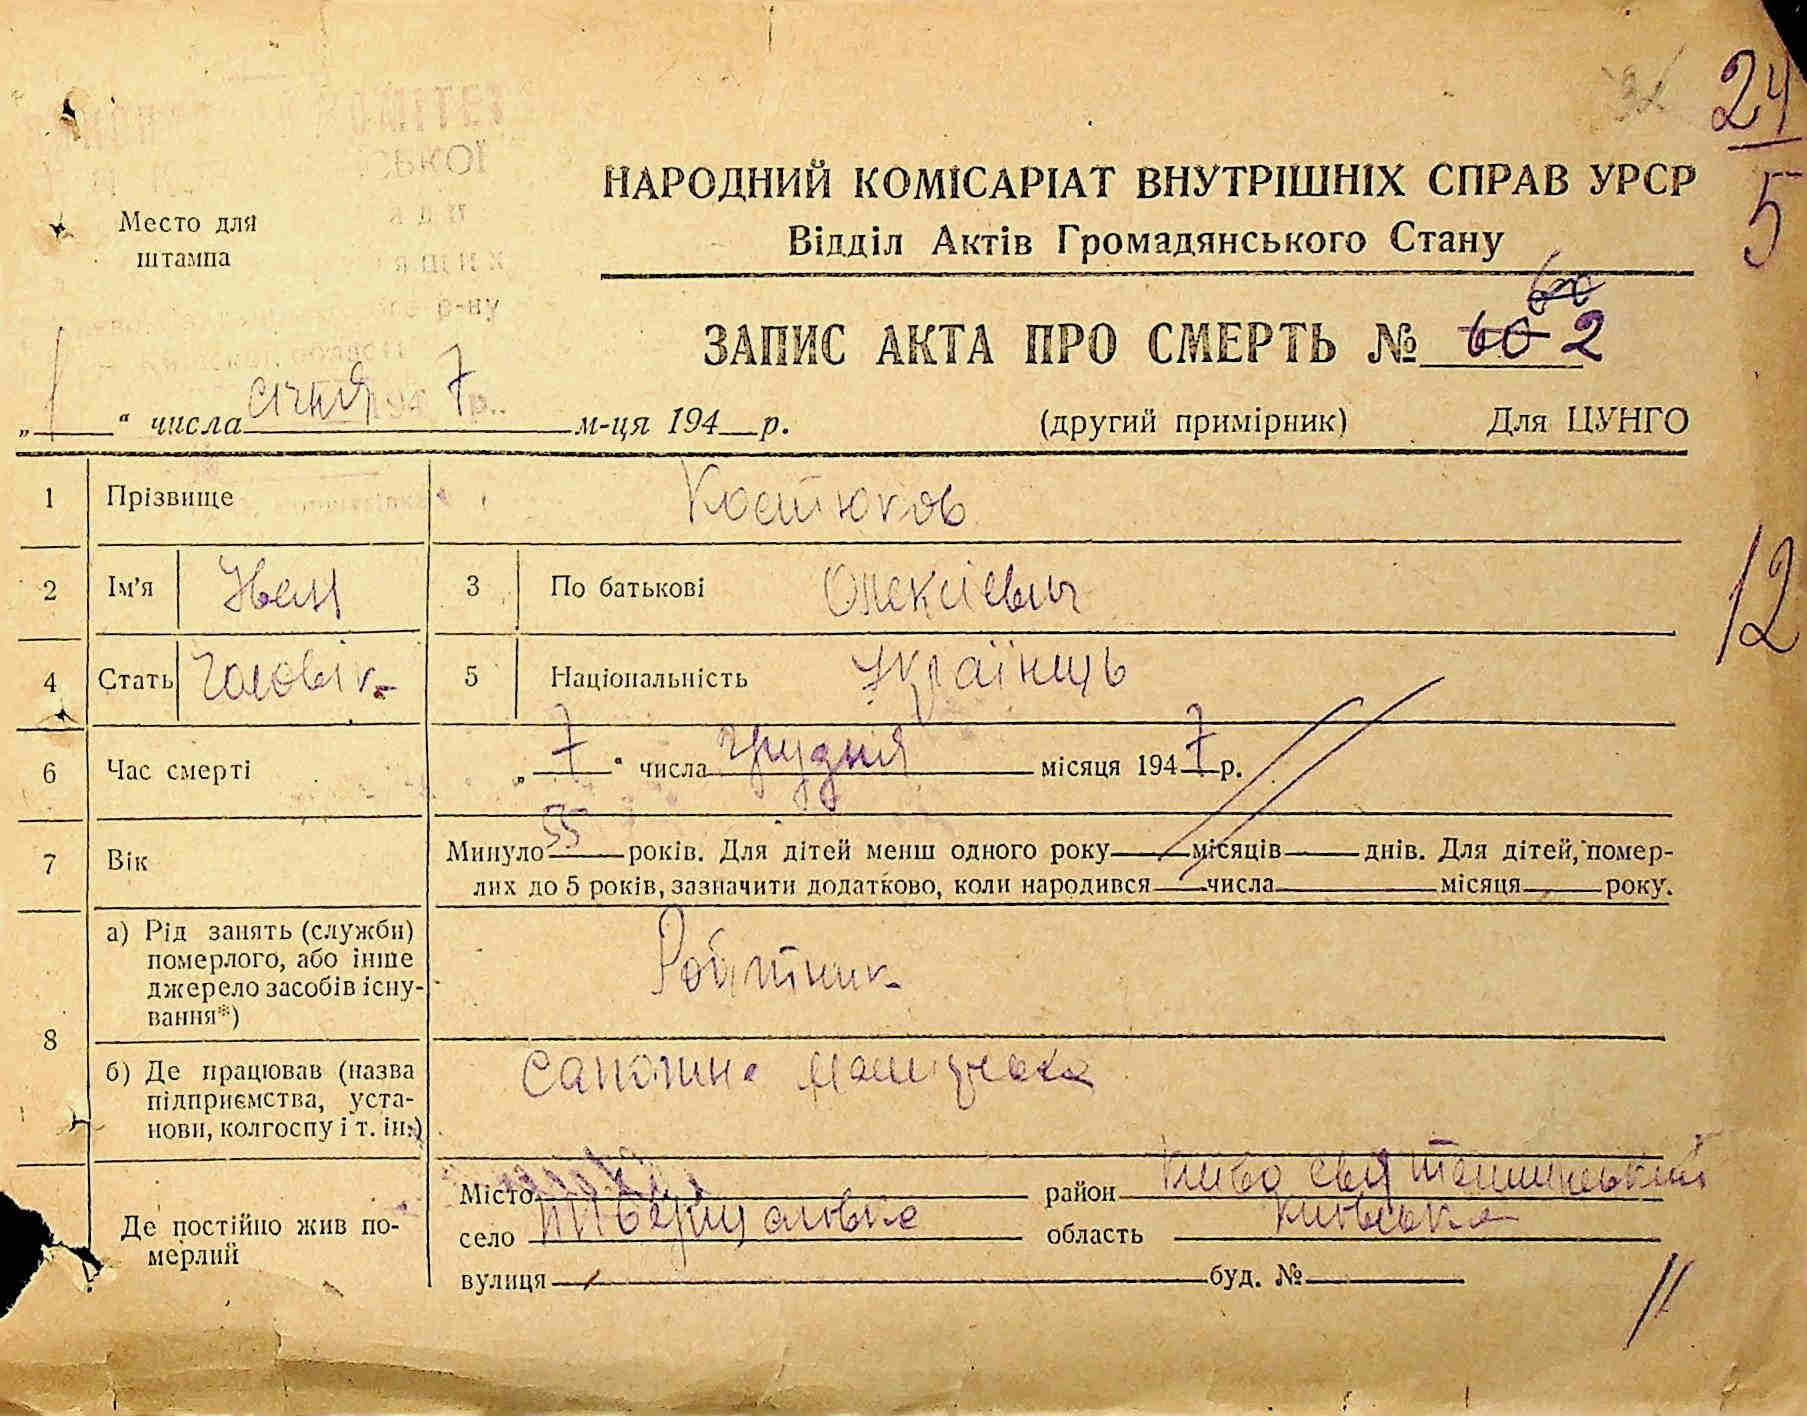 24
5
Место для
штампа
НАРОДНИЙ КОМІСАРІАТ ВНУТРІШНІХ СПРАВ УРСР
Відділ Актів Громадянського Стану
ЗАПИС АКТА ПРО СМЕРТЬ № 60 2
„1“ числа січня 7 м-ця 194 р. (другий примірник) Для ЦУНГО
1 Прізвище Костюков
2 Ім'я Иван 3 По батькові Олексієвич
12
4 Стать Чоловік 5 Національність Українець
6 Час смерті „7“ числа грудня місяця 1947 р.
7 Вік Минуло 55 років. Для дітей менш одного року місяців днів. Для дітей, помер-
лих до 5 років, зазначити додатково, коли народився числа місяця року.
8 а) Рід занять (служби)
померлого, або інше
джерело засобів існу-
вання*)
Робітник
б) Де працював (назва
підприємства, уста-
нови, колгоспу і т. ін.)
Де постійно жив по-
мерлий
Місто район Києво Святошинський
село область Київська
вулиця буд. №